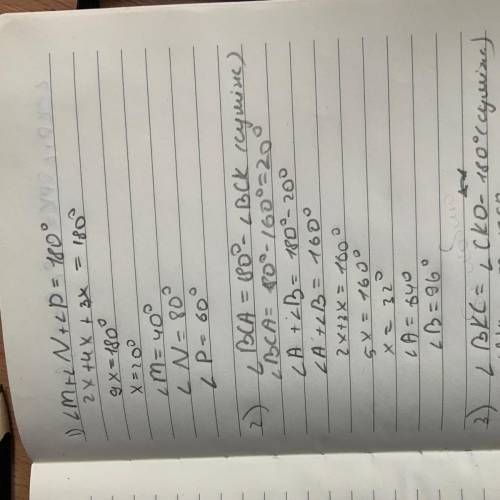 1) ∠M+∠N+∠P=180°
2x+4x+3x=180°
9x=180°
x=20°
∠M=40°
∠N=80°
∠P=60°
2) ∠BCA=180°-∠BCK (суміж)
∠BCA=180°-160°=20°
∠A+∠B=180°-20°
∠A+∠B=160°
2x+3x=160°
5x=160°
x=32°
∠A=64°
∠B=96°
3) ∠BKC=∠CKO-180° (суміж)